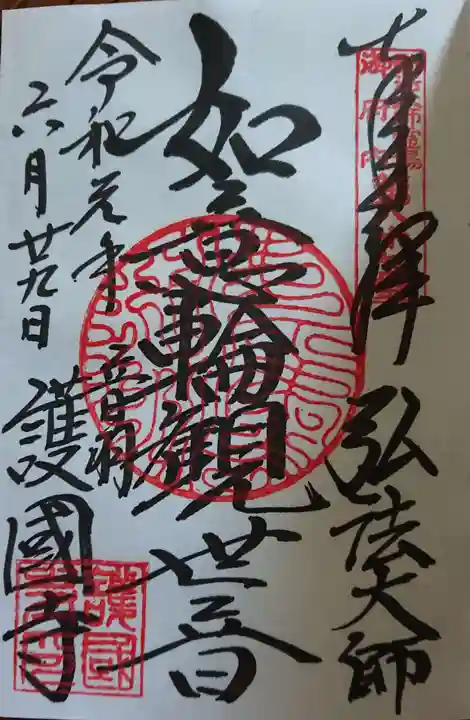 奉拝 弘法大師
如意輪観世音
令和元年
六月廿九日
音羽 護國寺
護國